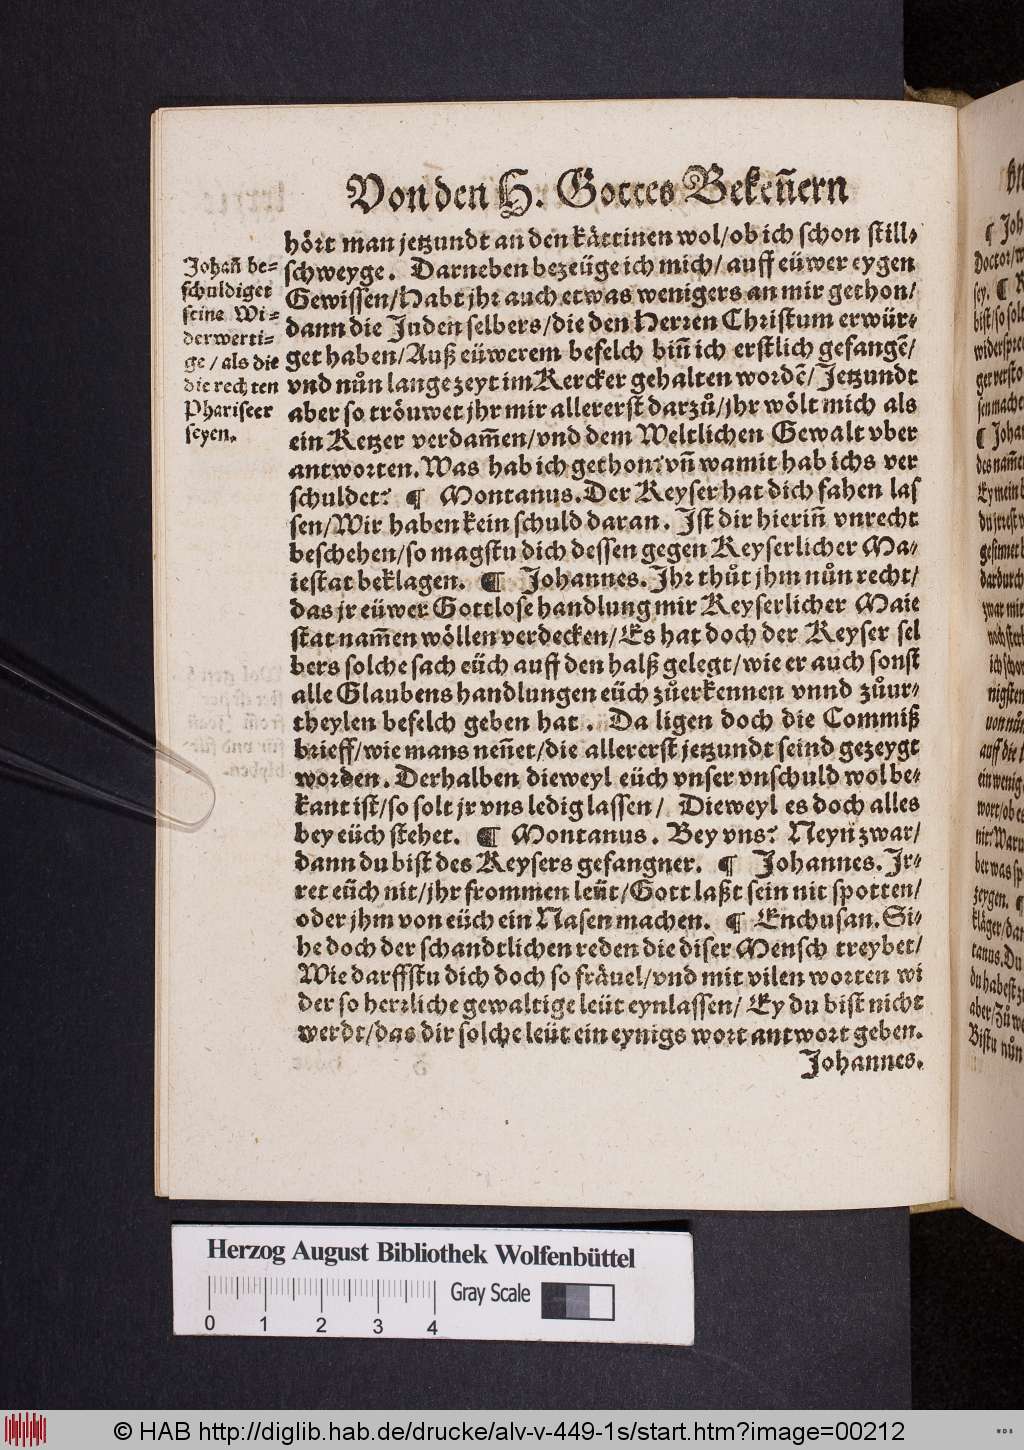 Von den H. Gottes Bekeñern
hört man jetzundt an den kättinen wol/ob ich schon still⸗
schweyge. Darneben bezeüge ich mich/auff eüwer eygen
Gewissen/Habt jhr auch etwas wenigers an mir gethon/
dann die Juden selbers/die den Herren Christum erwür⸗
get haben/Auß eüwerem befelch biñ ich erstlich gefangẽ/
vnd nůn lange zeyt im Kercker gehalten wordẽ/Jetzundt
aber so tröuwet jhr mir allererst darzů/jhr wölt mich als
ein Ketzer verdam̃en/vnd dem Weltlichen Gewalt vber
antworten. Was hab ich gethon? vñ wamit hab ichs ver
schuldet? ¶ Montanus. Der Keyser hat dich fahen las
sen/Wir haben kein schuld daran. Ist dir hieriñ vnrecht
beschehen/so magstu dich dessen gegen Keyserlicher Ma⸗
iestat beklagen. ¶ Johannes. Jhr thůt jhm nůn recht/
das jr eüwer Gottlose handlung mir Keyserlicher Maie
stat nam̃en wöllen verdecken/Es hat doch der Keyser sel
bers solche sach eüch auff den halß gelegt/wie er auch sonst
alle Glaubens handlungen eüch zůerkennen vnnd zůur⸗
theylen befelch geben hat. Da ligen doch die Commiß
brieff/wie mans neñet/die allererst jetzundt seind gezeygt
worden. Derhalben dieweyl eüch vnser vnschuld wol be⸗
kant ist/so solt jr vns ledig lassen/ Dieweyl es doch alles
bey eüch stehet. ¶ Montanus. Bey vns? Neyn zwar/
dann du bist des Keysers gefangner. ¶ Johannes. Jr⸗
ret eüch nit/jhr frommen leüt/Gott laßt sein nit spotten/
oder jhm von eüch ein Nasen machen. ¶ Enchusan. Si⸗
he doch der schandtlichen reden die diser Mensch treybet/
Wie darffstu dich doch so fräuel/vnd mit vilen worten wi
der so herrliche gewaltige leüt eynlassen/ Ey du bist nicht
werdt/das dir solche leüt ein eynigs wort antwort geben.
Johannes.
Johañ be⸗
schuldiget
seine Wi⸗
derwerti⸗
ge/als die
die rechten
Phariseer
seyen.
Herzog August Bibliothek Wolfenbüttel
Gray Scale
0 1 2 3 4
© HAB http://diglib.hab.de/drucke/alv-v-449-1s/start.htm?image=00212